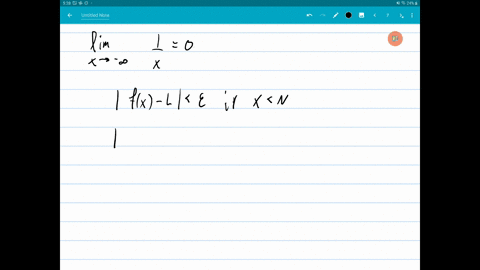 Untitled Note
lim 1/x = 0
x→-∞
| f(x) - L | < ε if x < N
|